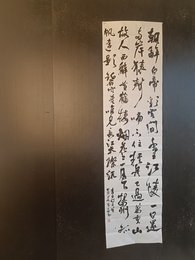 朝辭白帝彩雲間千里江陵一日還
兩岸猿聲啼不住輕舟已過萬重山
故人西辭黃鶴樓煙花三月下揚州孤
帆遠影碧空盡唯見長江天際流